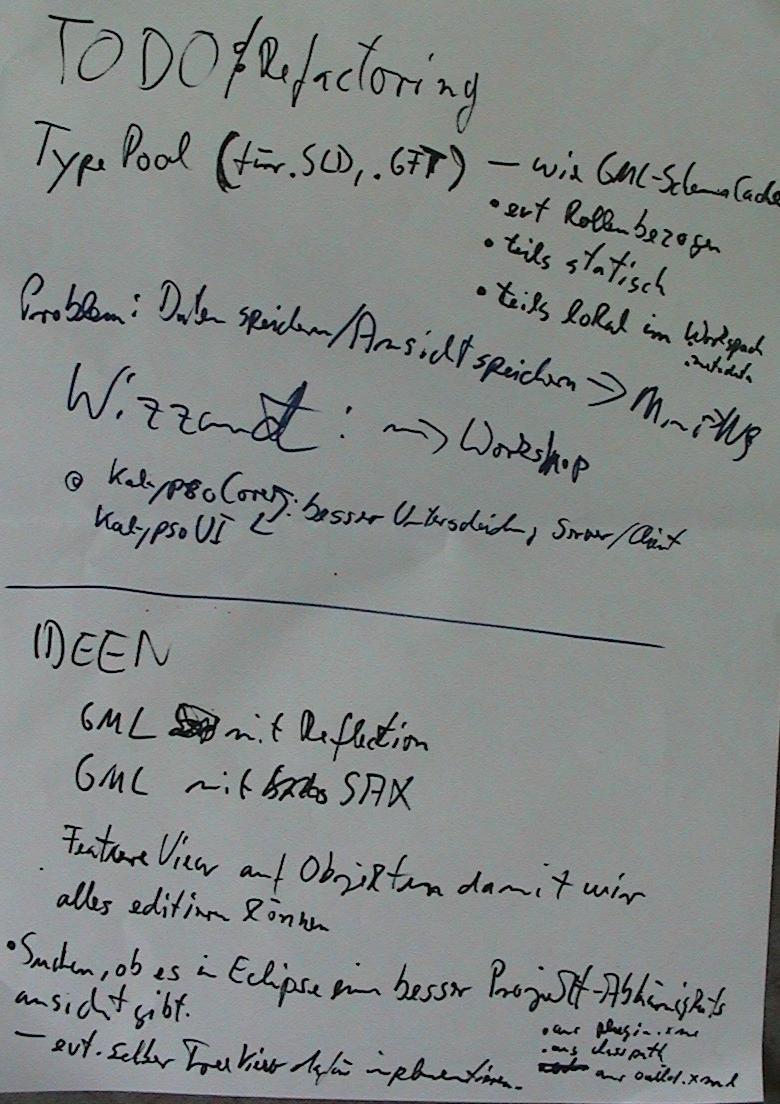 TODO & Refactoring
Type Pool (für .SLD, .GFT) – wie GML-Schema Cache
• evt Rollenbezogen
• teils statisch
• teils lokal im Workspace
.metadata
Problem: Daten speichern/Ansicht speichern ⇒
Wizzard: → Workshop
Kalypso Core: besser Unterscheidung Server/Client
Kalypso UI
IDEEN
GML mit Reflection
GML mit SAX
Feature View auf Objekten damit wir
alles editieren können
• Suchen, ob es in Eclipse ein besser Projekt-Abhänigkeits
ansicht gibt.
• aus plugin.xml
• aus classpath
aus .xml
– evt. selber TreeView dafür implementieren.